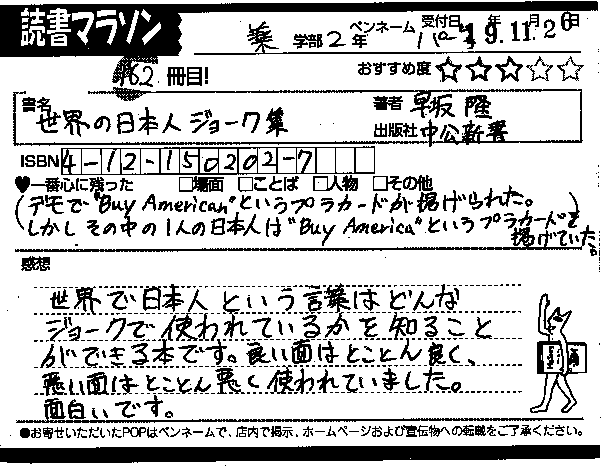 読書マラソン
薬 学部 2 年 ペンネーム 受付日 年 月 日
19.11.26
162 冊目! おすすめ度 ☆☆☆☆☆
書名 世界の日本人ジョーク集
著者 早坂 隆
出版社 中公新書
ISBN 4-12-150202-7
♥一番心に残った □場面 □ことば □人物 □その他
(デモで"Buy American"というプラカードが掲げられた。
しかしその中の1人の日本人は"Buy America"というプラカードを
掲げていた。)
感想
世界で日本人という言葉はどんな
ジョークで使われているかを知ること
ができる本です。良い面はとことん良く、
悪い面はとことん悪く使われていました。
面白いです。
●お寄せいただいたPOPはペンネームで、店内で掲示、ホームページおよび宣伝物への転載をご了承ください。